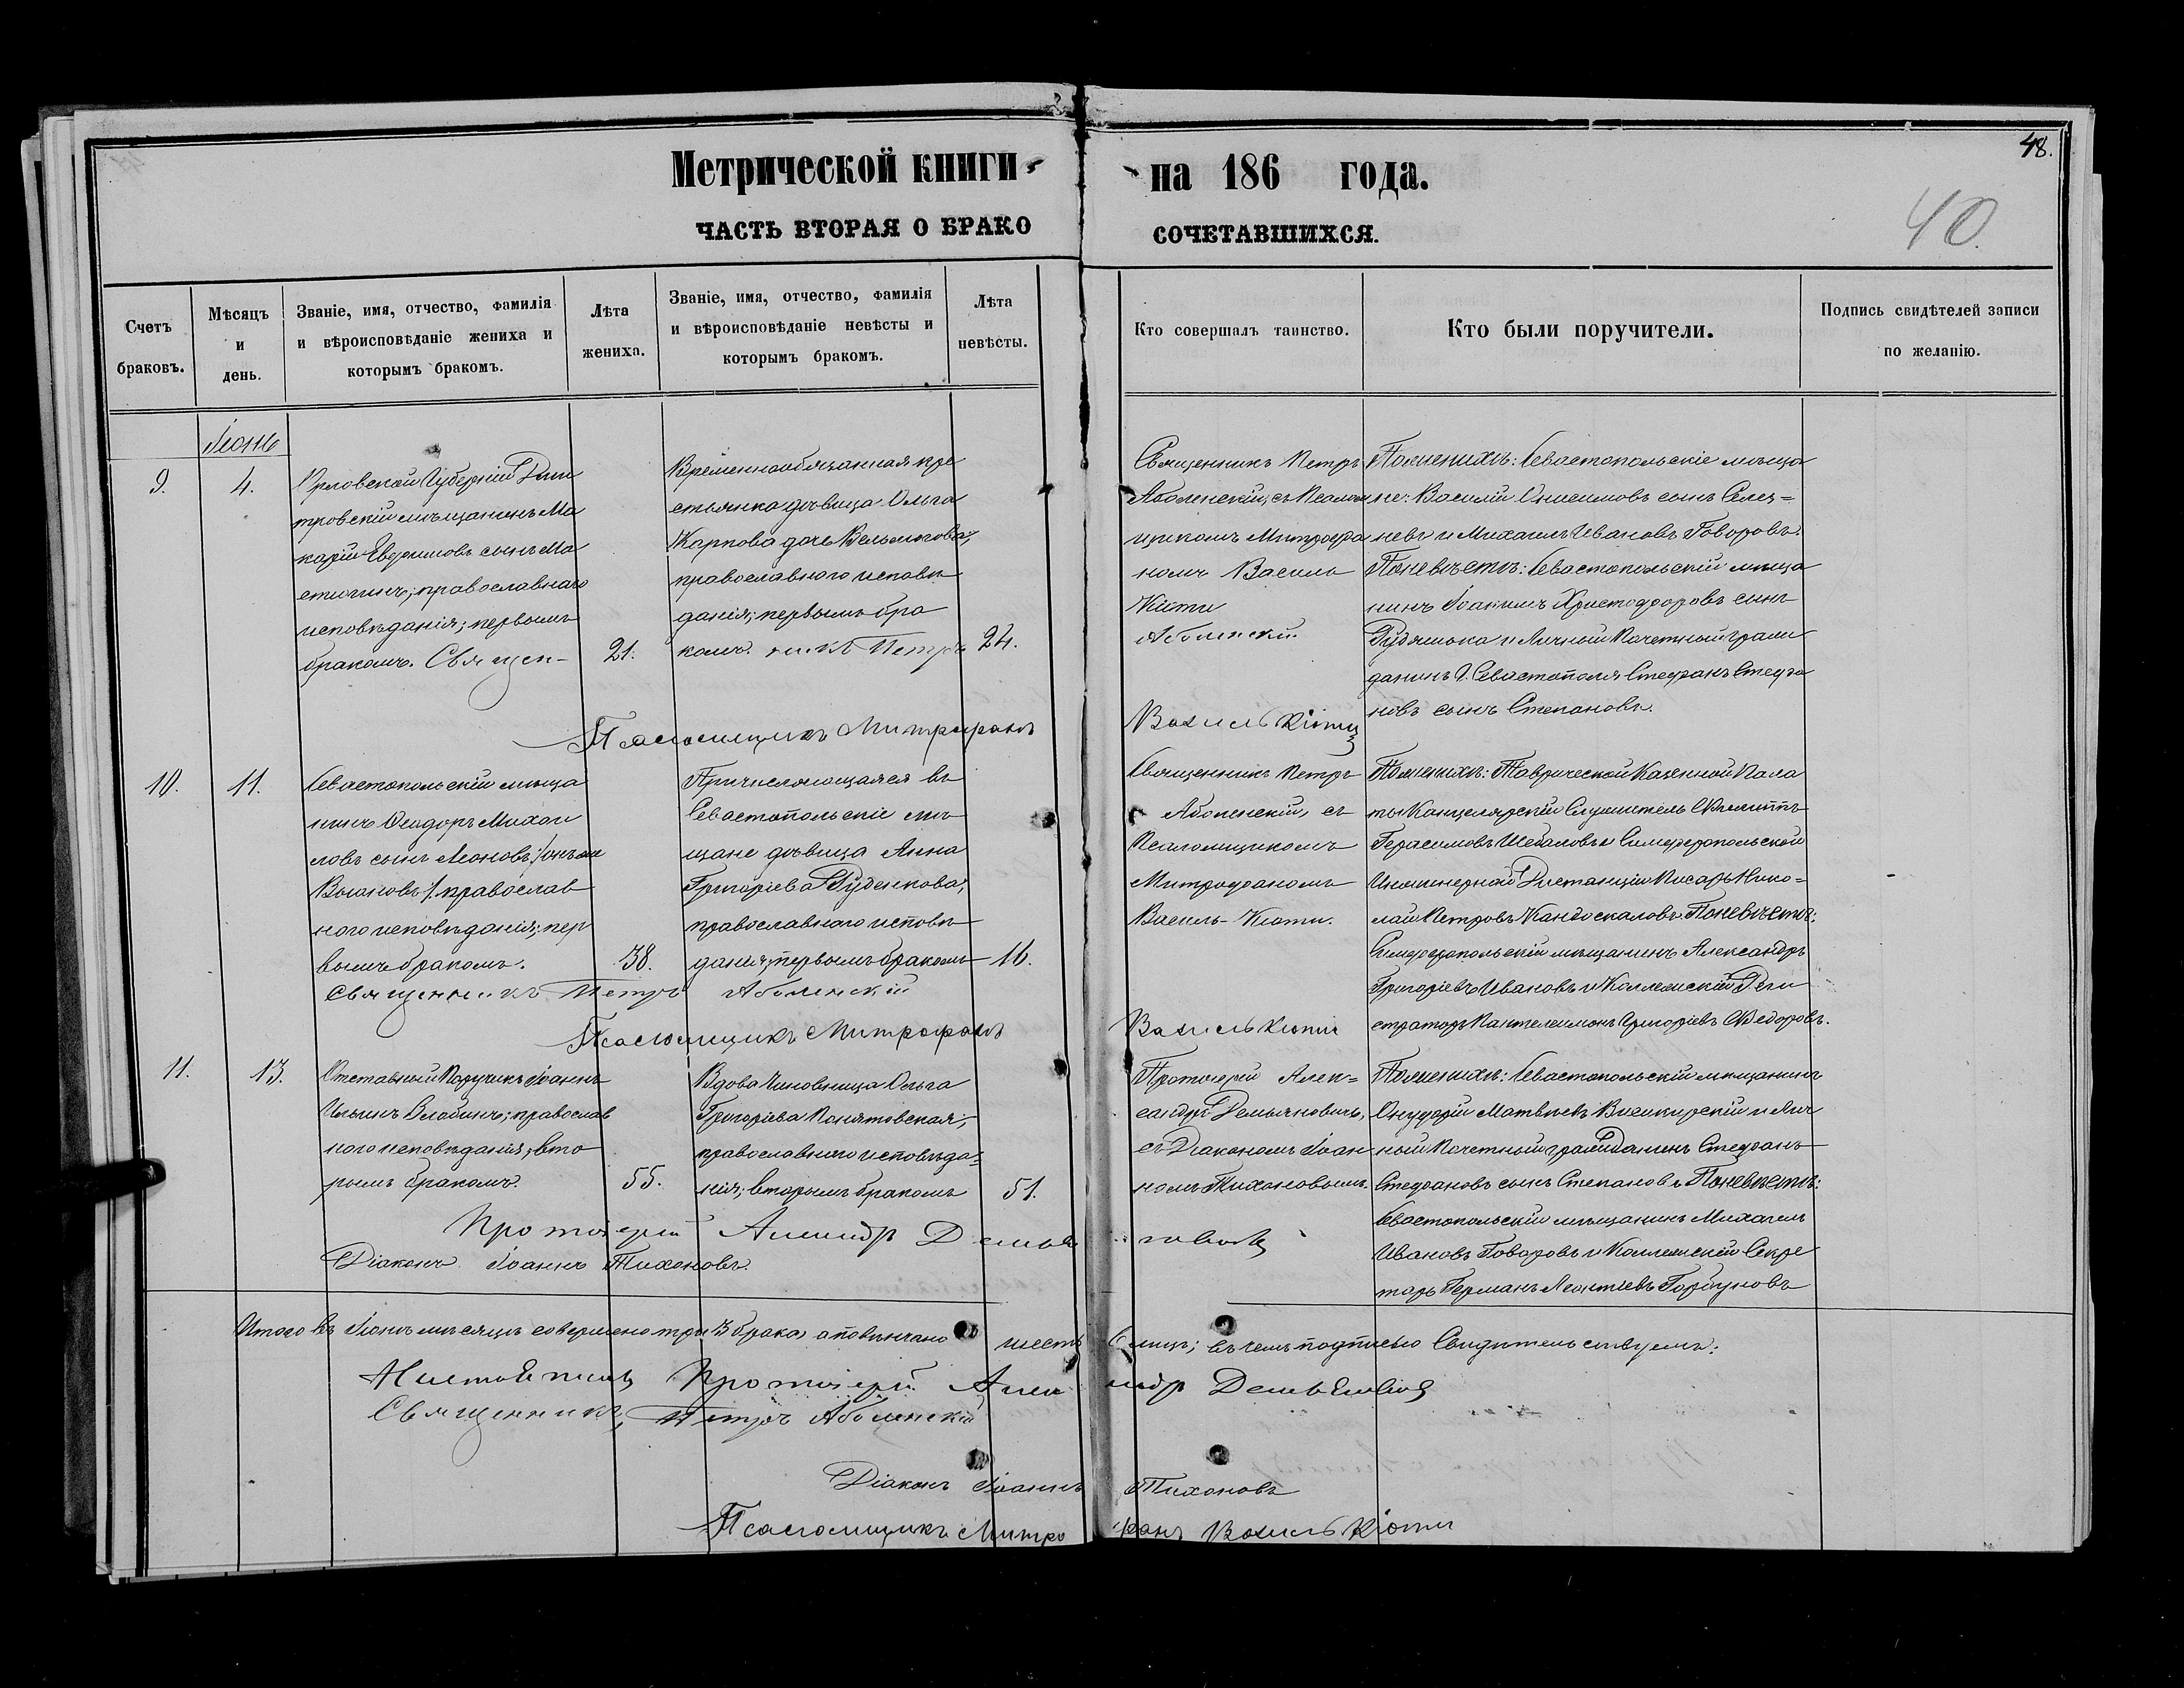 48.
40.
Метрической книги на 186 года.
ЧАСТЬ ВТОРАЯ О БРАКО СОЧЕТАВШИХСЯ.
Счетъ браковъ.
Мѣсяцъ и день.
Званіе, имя, отчество, фамилія
и вѣроисповѣданіе жениха и
которымъ бракомъ.
Лѣта
жениха.
Званіе, имя, отчество, фамилія
и вѣроисповѣданіе невѣсты и
которымъ бракомъ.
Лѣта
невѣсты.
Кто совершалъ таинство.
Кто были поручители.
Подпись свидѣтелей записи
по желанію.
Іюнь
9.
4.
Орловской Губерніи Дми
тровскій мѣщанинъ Ма
карій Евфимовъ сынъ
православнаго
исповѣданія; первымъ
бракомъ. Священ-
21.
Временнообязанная кре
стьянка дѣвица Ольга
Карпова дочь
православнаго исповѣ
данія; первымъ бра
комъ. никъ Петръ
24.
Священникъ Петръ
Аболенскій, съ Псалом
щикомъ Митрофа
номъ Василь
Кіоти
Аболенскій
По женихѣ: Севастопольскіе мѣща
не: Василій Онисимовъ сынъ Селез=
невъ и Михаилъ Ивановъ Говоровъ.
По невѣстѣ: Севастопольскій мѣща
нинъ Іоакимъ Христофоровъ сынъ
и Личный Почетный граж
данинъ г. Севастополя Стефанъ Стефа
новъ сынъ Степановъ.
Псаломщикъ Митрофанъ Василь Кіоти
10.
11.
Севастопольскій мѣща
нинъ Ѳеодоръ Михаи
ловъ сынъ Леоновъ /онъ же
православ
наго исповѣданія; пер
вымъ бракомъ.
38.
Причисляющаяся въ
Севастопольскіе мѣ
щане дѣвица Анна
Григоріева Руденкова;
православнаго исповѣ
данія; первымъ бракомъ
16.
Священникъ Петръ
Аболенскій, съ
Псаломщикомъ
Митрофаномъ
Василь-Кіоти.
По женихѣ: Таврической Казенной Пала
ты Канцелярскій Служитель Филиппъ
Герасимовъ Шебаловъ и Симферопольской
Инженерной Дистанціи Писарь Нико=
лай Петровъ Кандоскаловъ. По невѣстѣ:
Симферопольскій мѣщанинъ Александръ
Григоріевъ Ивановъ и Коллежскій Реги
страторъ Пантелеимонъ Григоріевъ Федоровъ.
Священникъ Петръ Аболенскій
Псаломщикъ Митрофанъ Василь Кіоти
11.
13.
Отставный Поручикъ Іоаннъ
Ильинъ Слабинъ; православ
наго исповѣданія; вто
рымъ бракомъ.
55.
Вдова Чиновница Ольга
Григоріева Понятовская;
православнаго исповѣда=
нія; вторымъ бракомъ
51.
Протоіерей Алек=
сандръ Демьяновичъ,
съ Діакономъ Іоан
номъ Тихоновымъ.
По женихѣ: Севастопольскій мѣщанинъ
Онуфрій Матвѣевъ и Лич
ный Почетный гражданинъ Стефанъ
Стефановъ сынъ Степановъ. По невѣстѣ:
Севастопольскій мѣщанинъ Михаилъ
Ивановъ Говоровъ и Коллежскій Секре
тарь Германъ Леонтіевъ Горбуновъ
Протоіерей Александръ Демьяновичъ
Діаконъ Іоаннъ Тихоновъ.
Итого въ Іюнѣ мѣсяцѣ совершено три 3 брака а повѣнчано шесть 6 лицъ; въ чемъ подписью Свидѣтельствуемъ:
Настоятель Протоіерей Александръ Демьяновичъ
Священникъ Петръ Аболенскій
Діаконъ Іоаннъ Тихоновъ
Псаломщикъ Митрофанъ Василь Кіоти